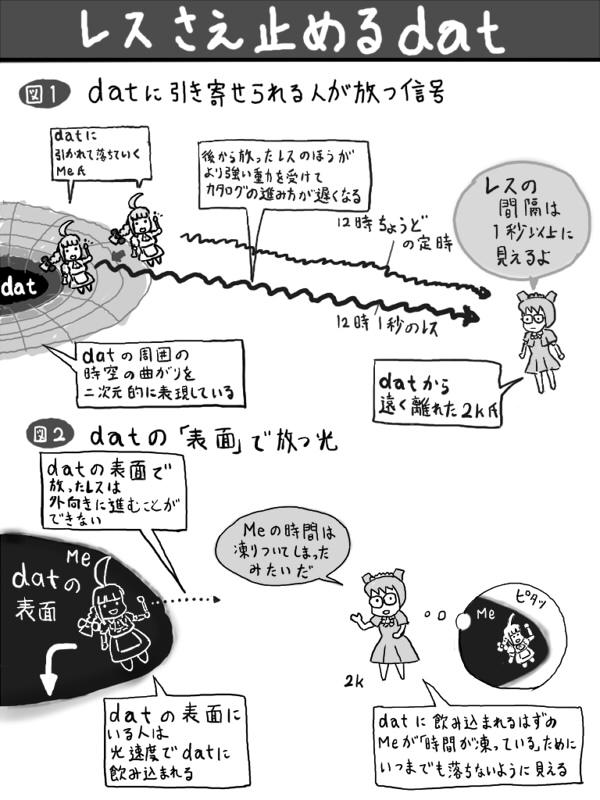 レスさえ止めるdat
図1 datに引き寄せられる人が放つ信号
datに
引かれて落ちていく
Me氏
後から放ったレスのほうが
より強い重力を受けて
カタログの進み方が遅くなる
12時ちょうど
の定時
レスの
間隔は
1秒以上に
見えるよ
dat
12時1秒のレス
datの周囲の
時空の曲がりを
二次元的に表現している
datから
遠く離れた2k氏
図2 datの「表面」で放つ光
datの表面で
放ったレスは
外向きに進むことが
できない
Meの時間は
凍りついてしまった
みたいだ
Me
datの
表面
ピタッ
Me
2k
datの表面に
いる人は
光速度でdatに
飲み込まれる
datに飲み込まれるはずの
Meが「時間が凍っている」ために
いつまでも落ちないように見える